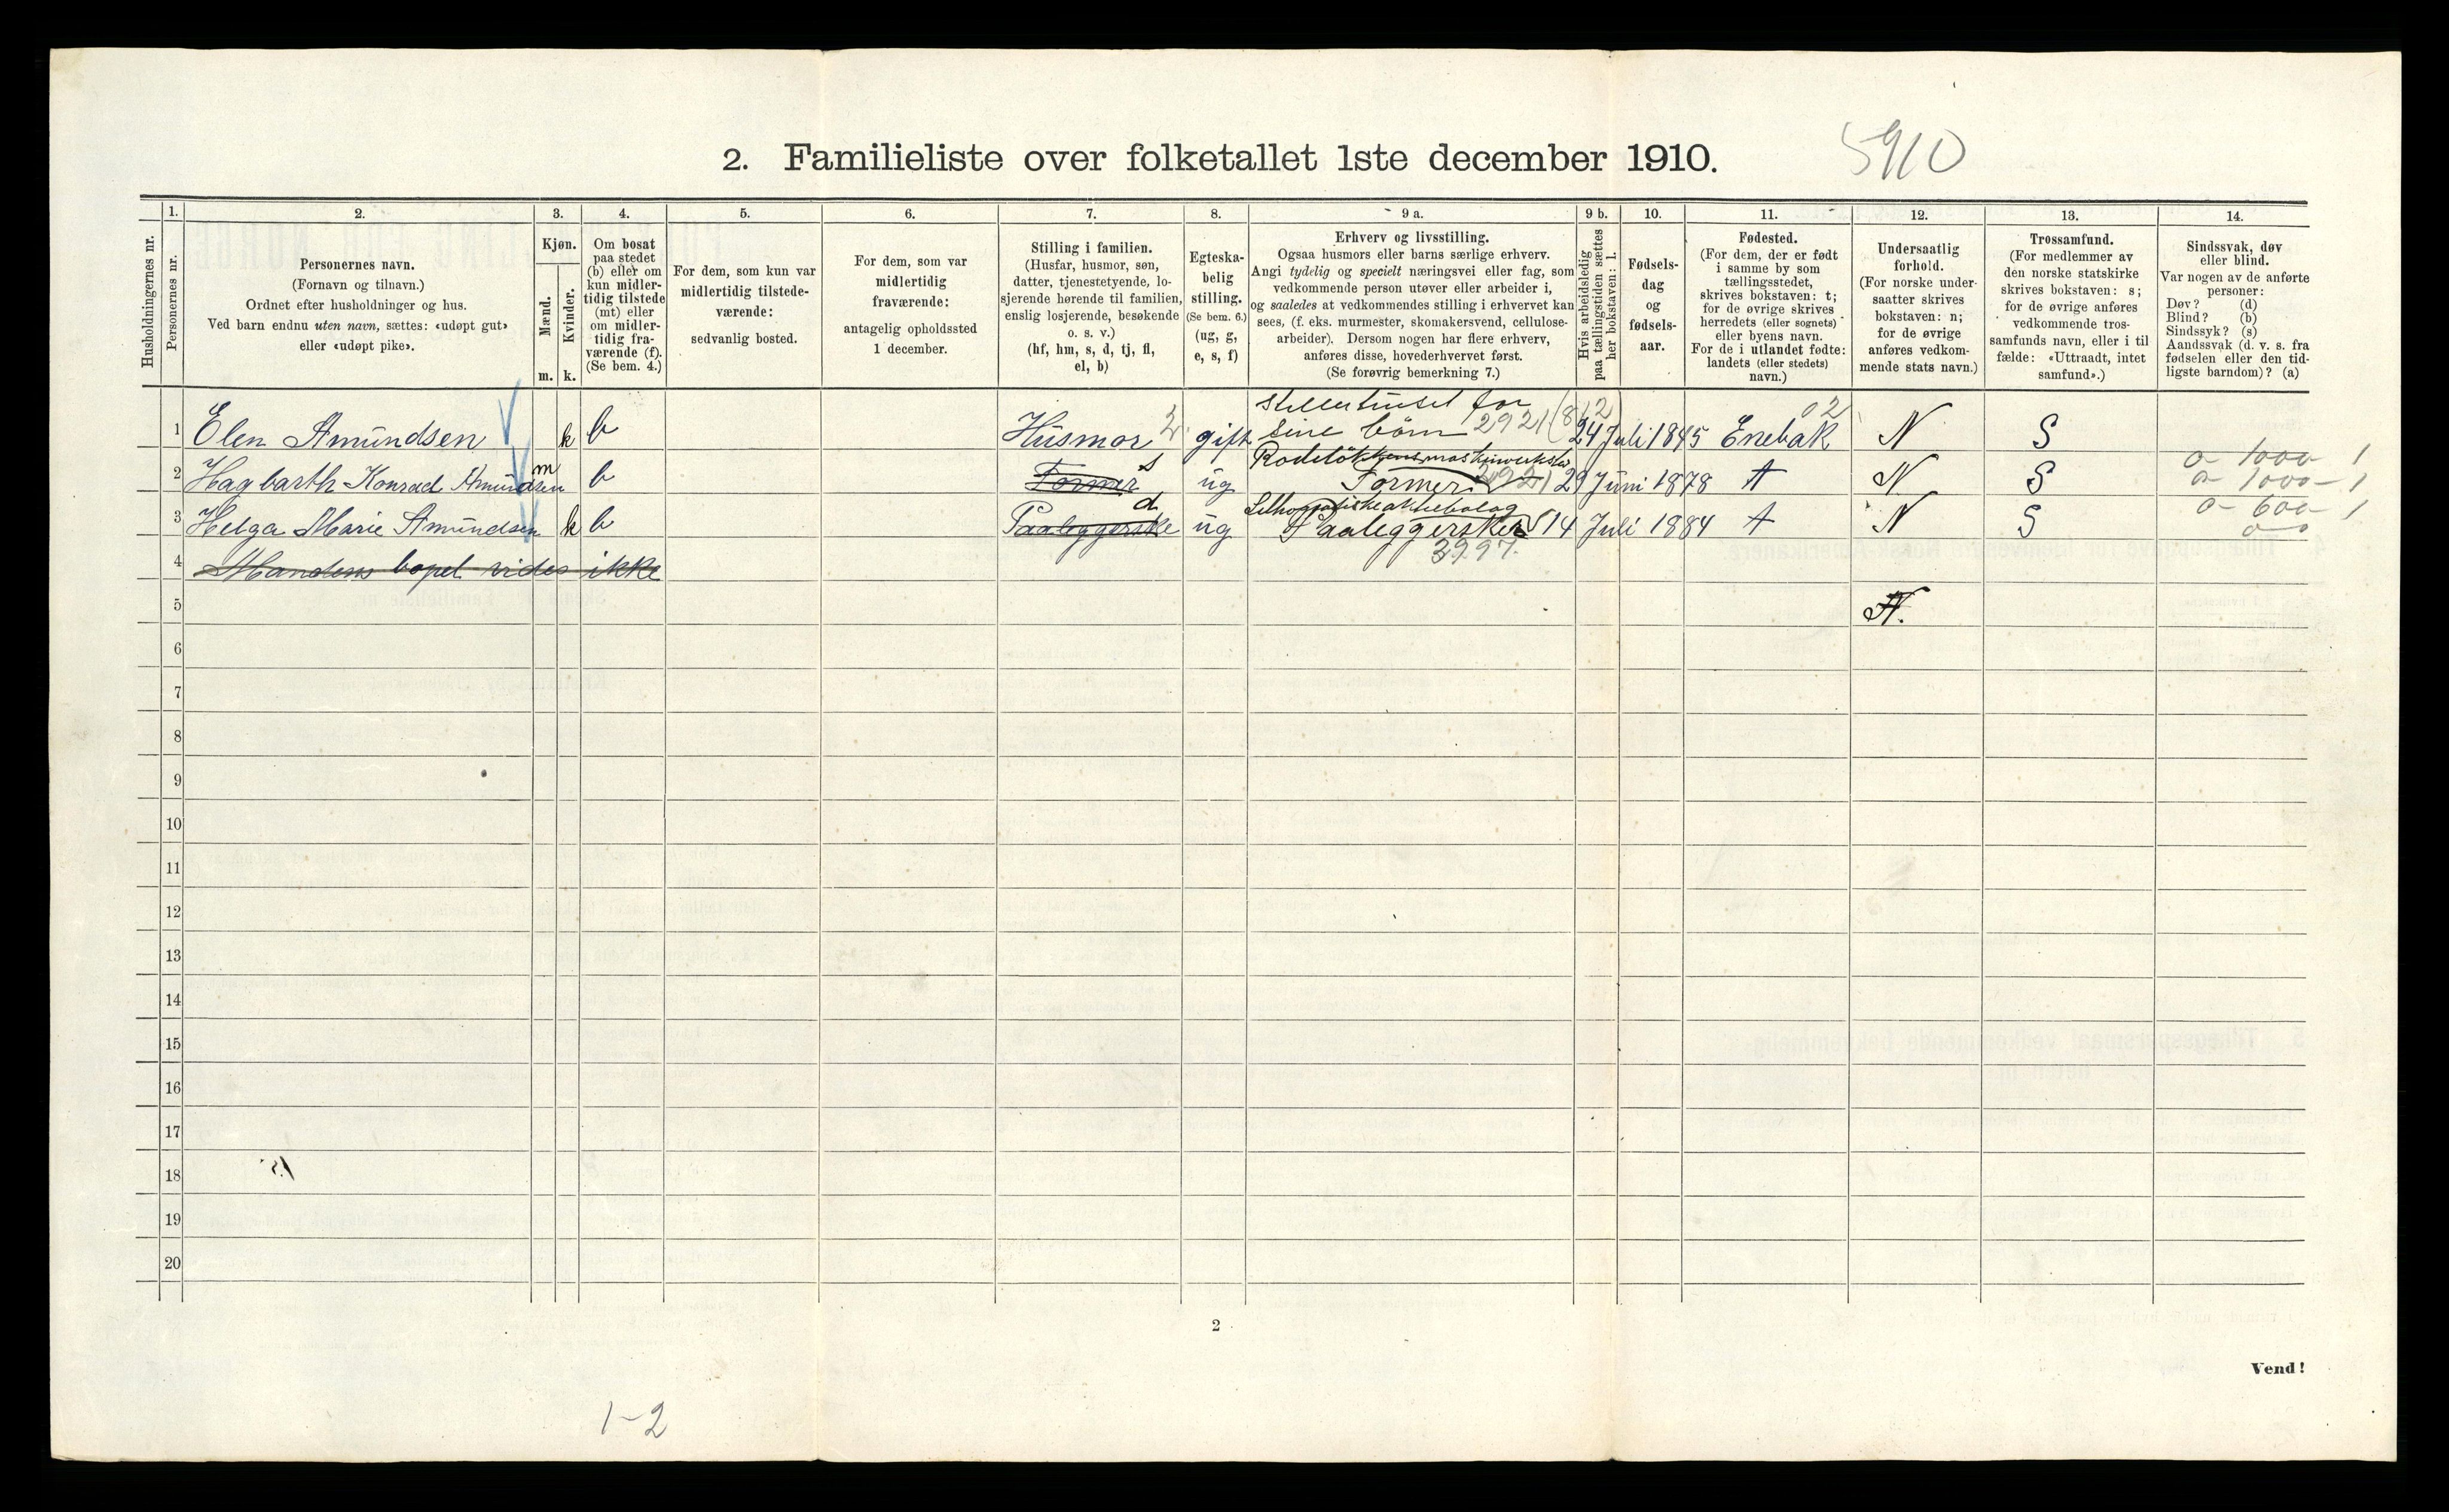 2. Familieliste over folketallet 1ste december 1910.
5910
Husholdningernes nr.
1.
Personernes nr.
2.
Personernes navn.
(Fornavn og tilnavn.)
Ordnet efter husholdninger og hus.
Ved barn endnu uten navn, sættes: «udøpt gut»
eller «udøpt pike».
3.
Kjøn.
Mænd.
Kvinder.
m.
k.
4.
Om bosat
paa stedet
(b) eller om
kun midler-
tidig tilstede
(mt) eller
om midler-
tidig fra-
værende (f).
(Se bem. 4.)
5.
For dem, som kun var
midlertidig tilstede-
værende:
sedvanlig bosted.
6.
For dem, som var
midlertidig
fraværende:
antagelig opholdssted
1 december.
7.
Stilling i familien.
(Husfar, husmor, søn,
datter, tjenestetyende, lo-
sjerende hørende til familien,
enslig losjerende, besøkende
o. s. v.)
(hf, hm, s, d, tj, fl,
el, b)
8.
Egteska-
belig
stilling.
(Se bem. 6.)
(ug, g,
e, s, f)
9 a.
Erhverv og livsstilling.
Ogsaa husmors eller barns særlige erhverv.
Angi tydelig og specielt næringsvei eller fag, som
vedkommende person utøver eller arbeider i,
og saaledes at vedkommendes stilling i erhvervet kan
sees, (f. eks. murmester, skomakersvend, cellulose-
arbeider). Dersom nogen har flere erhverv,
anføres disse, hovederhvervet først.
(Se forøvrig bemerkning 7.)
9 b.
Hvis arbeidsledig
paa tællingstiden sættes
her bokstaven: l.
10.
Fødsels-
dag
og
fødsels-
aar.
11.
Fødested.
(For dem, der er født
i samme by som
tællingsstedet,
skrives bokstaven: t;
for de øvrige skrives
herredets (eller sognets)
eller byens navn.
For de i utlandet fødte:
landets (eller stedets)
navn.)
12.
Undersaatlig
forhold.
(For norske under-
saatter skrives
bokstaven: n;
for de øvrige
anføres vedkom-
mende stats navn.)
13.
Trossamfund.
(For medlemmer av
den norske statskirke
skrives bokstaven: s;
for de øvrige anføres
vedkommende tros-
samfunds navn, eller i til
fælde: «Uttraadt, intet
samfund».)
14.
Sindssvak, døv
eller blind.
Var nogen av de anførte
personer:
Døv? (d)
Blind? (b)
Sindssyk? (s)
Aandssvak (d. v. s. fra
fødselen eller den tid-
ligste barndom)? (a)
1 Elen Amundsen k b Husmor gift steller huset for sine börn 2921 24 Juli 1845 Enebak 02 N S
2 Hagbarth Konrad Amundsen m b Former s ug Former 29 Juni 1878 t N S
o 1000 1
o 1000 - 1
3 Helga Marie Amundsen k b Paaleggerske d ug Paaleggerske 14 Juli 1884 t N S
3997.
o 600 1
4 Mandens bopel vides ikke
5 N.
6
7
8
9
10
11
12
13
14
15
16
17
18
19
20
2
Vend!
1-2